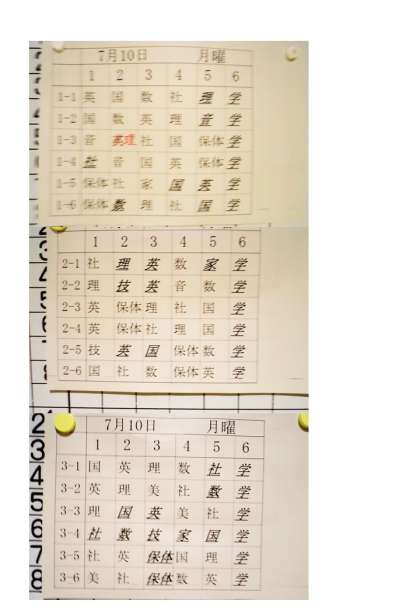 7月10日 月曜
1 2 3 4 5 6
1-1 英 国 数 社 理 学
1-2 国 数 英 理 音 学
1-3 音 英理 社 国 保体 学
1-4 社 音 国 英 保体 学
1-5 保体 社 家 国 英 学
1-6 保体 数 理 社 国 学
1 2 3 4 5 6
2-1 社 理 英 数 家 学
2-2 理 技 英 音 数 学
2-3 英 保体 理 社 国 学
2-4 英 保体 社 理 国 学
2-5 技 英 国 保体 数 学
2-6 国 社 数 保体 英 学
7月10日 月曜
1 2 3 4 5 6
3-1 国 英 理 数 社 学
3-2 英 理 美 社 数 学
3-3 理 国 英 美 社 学
3-4 社 数 技 家 国 学
3-5 社 英 保体 国 理 学
3-6 美 社 保体 数 英 学
2
3
4
5
6
7
8